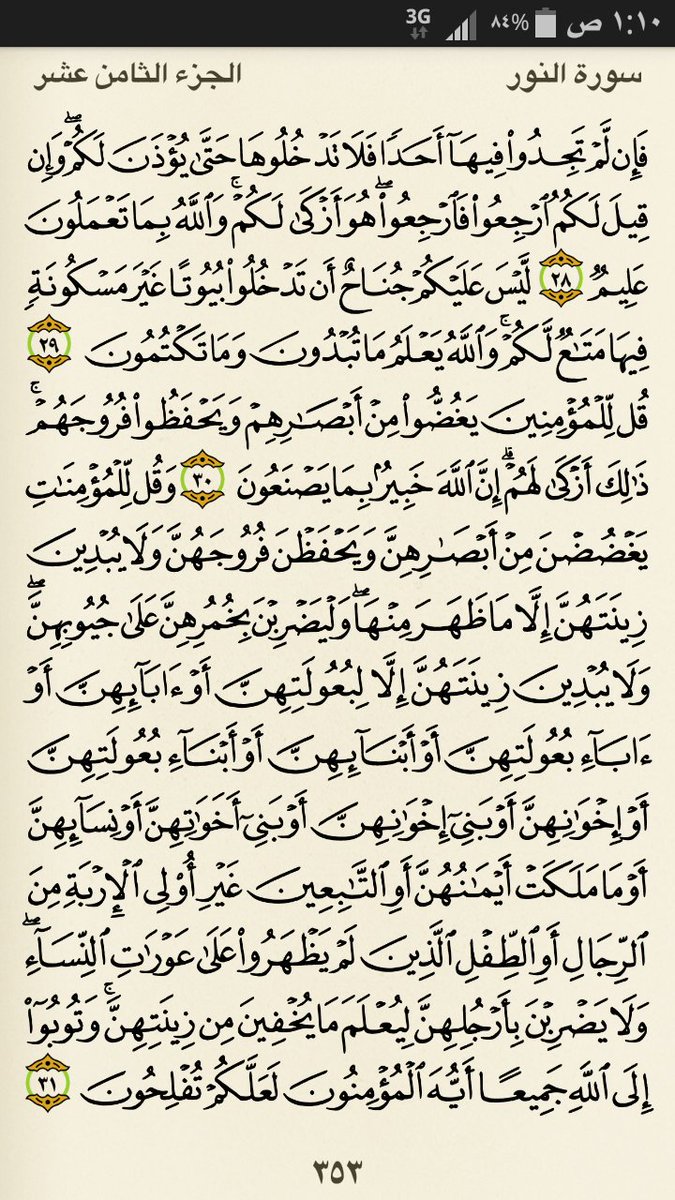 3G ٨٤% ١:١٠ ص
سورة النور الجزء الثامن عشر
فَإِن لَّمْ تَجِدُوا۟ فِيهَآ أَحَدًا فَلَا تَدْخُلُوهَا حَتَّىٰ يُؤْذَنَ لَكُمْ ۖ وَإِن
قِيلَ لَكُمُ ٱرْجِعُوا۟ فَٱرْجِعُوا۟ ۖ هُوَ أَزْكَىٰ لَكُمْ ۚ وَٱللَّهُ بِمَا تَعْمَلُونَ
عَلِيمٌ ٢٨ لَّيْسَ عَلَيْكُمْ جُنَاحٌ أَن تَدْخُلُوا۟ بُيُوتًا غَيْرَ مَسْكُونَةٍ
فِيهَا مَتَـٰعٌ لَّكُمْ ۚ وَٱللَّهُ يَعْلَمُ مَا تُبْدُونَ وَمَا تَكْتُمُونَ ٢٩
قُل لِّلْمُؤْمِنِينَ يَغُضُّوا۟ مِنْ أَبْصَـٰرِهِمْ وَيَحْفَظُوا۟ فُرُوجَهُمْ ۚ
ذَٰلِكَ أَزْكَىٰ لَهُمْ ۗ إِنَّ ٱللَّهَ خَبِيرٌۢ بِمَا يَصْنَعُونَ ٣٠ وَقُل لِّلْمُؤْمِنَـٰتِ
يَغْضُضْنَ مِنْ أَبْصَـٰرِهِنَّ وَيَحْفَظْنَ فُرُوجَهُنَّ وَلَا يُبْدِينَ
زِينَتَهُنَّ إِلَّا مَا ظَهَرَ مِنْهَا ۖ وَلْيَضْرِبْنَ بِخُمُرِهِنَّ عَلَىٰ جُيُوبِهِنَّ ۖ
وَلَا يُبْدِينَ زِينَتَهُنَّ إِلَّا لِبُعُولَتِهِنَّ أَوْ ءَابَآئِهِنَّ أَوْ
ءَابَآءِ بُعُولَتِهِنَّ أَوْ أَبْنَآئِهِنَّ أَوْ أَبْنَآءِ بُعُولَتِهِنَّ
أَوْ إِخْوَٰنِهِنَّ أَوْ بَنِىٓ إِخْوَٰنِهِنَّ أَوْ بَنِىٓ أَخَوَٰتِهِنَّ أَوْ نِسَآئِهِنَّ
أَوْ مَا مَلَكَتْ أَيْمَـٰنُهُنَّ أَوِ ٱلتَّـٰبِعِينَ غَيْرِ أُو۟لِى ٱلْإِرْبَةِ مِنَ
ٱلرِّجَالِ أَوِ ٱلطِّفْلِ ٱلَّذِينَ لَمْ يَظْهَرُوا۟ عَلَىٰ عَوْرَٰتِ ٱلنِّسَآءِ ۖ
وَلَا يَضْرِبْنَ بِأَرْجُلِهِنَّ لِيُعْلَمَ مَا يُخْفِينَ مِن زِينَتِهِنَّ ۚ وَتُوبُوٓا۟
إِلَى ٱللَّهِ جَمِيعًا أَيُّهَ ٱلْمُؤْمِنُونَ لَعَلَّكُمْ تُفْلِحُونَ ٣١
٣٥٣